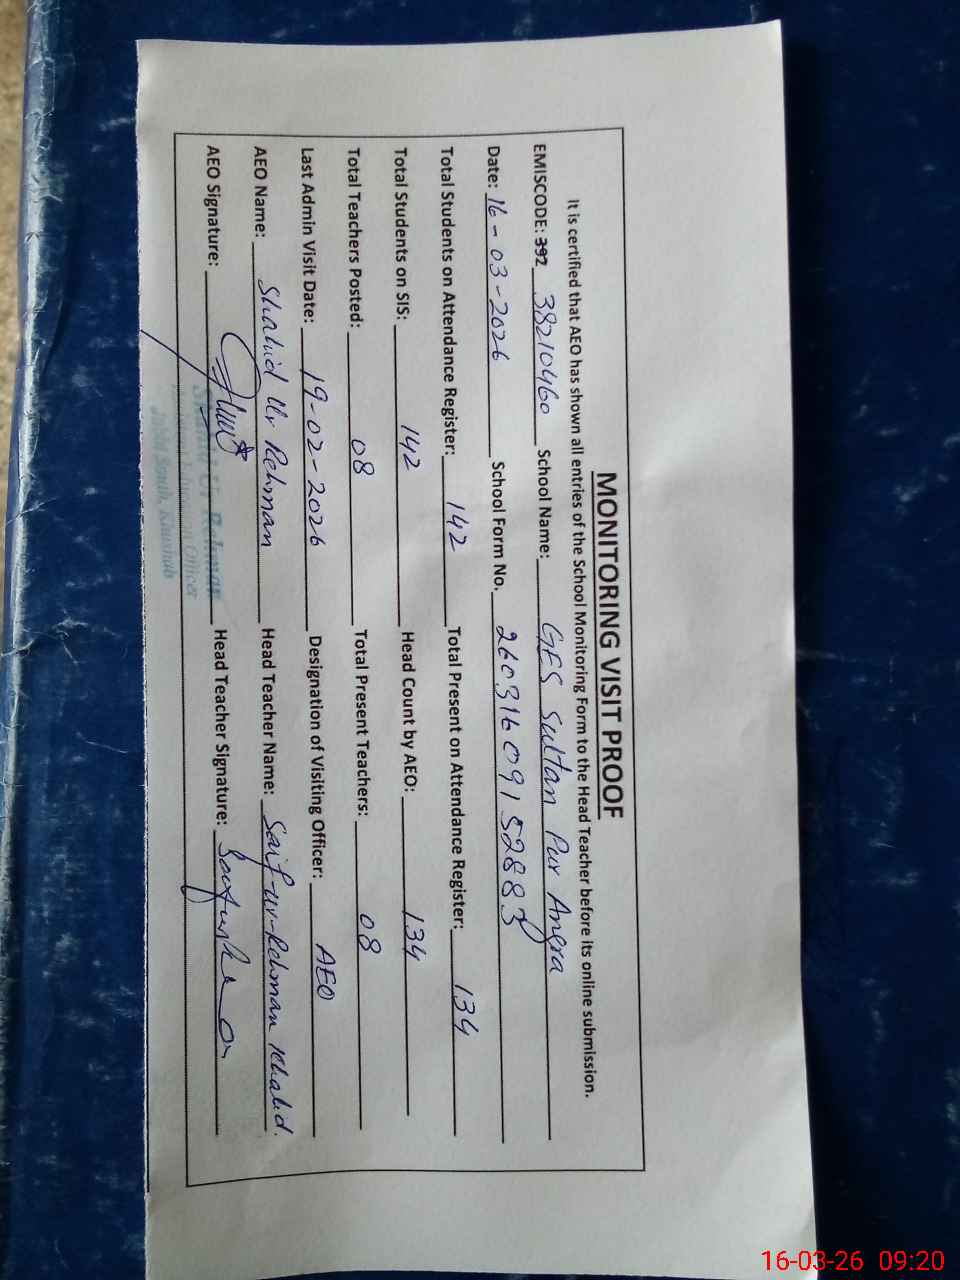 MONITORING VISIT PROOF
It is certified that AEO has shown all entries of the School Monitoring Form to the Head Teacher before its online submission.
EMISCODE: 392 38210460 School Name: GES Sultan Pur Angra
Date: 16-03-2026 School Form No. 26031609152883
Total Students on Attendance Register: 142 Total Present on Attendance Register: 134
Total Students on SIS: 142 Head Count by AEO: 134
Total Teachers Posted: 08 Total Present Teachers: 08
Last Admin Visit Date: 19-02-2026 Designation of Visiting Officer: AEO
AEO Name: Shahid Ur Rehman Head Teacher Name: Saif-ur-Rehman Khalid.
AEO Signature: Head Teacher Signature:
Shahid Ur Rehman
Education Officer
Khushab
16-03-26 09:20